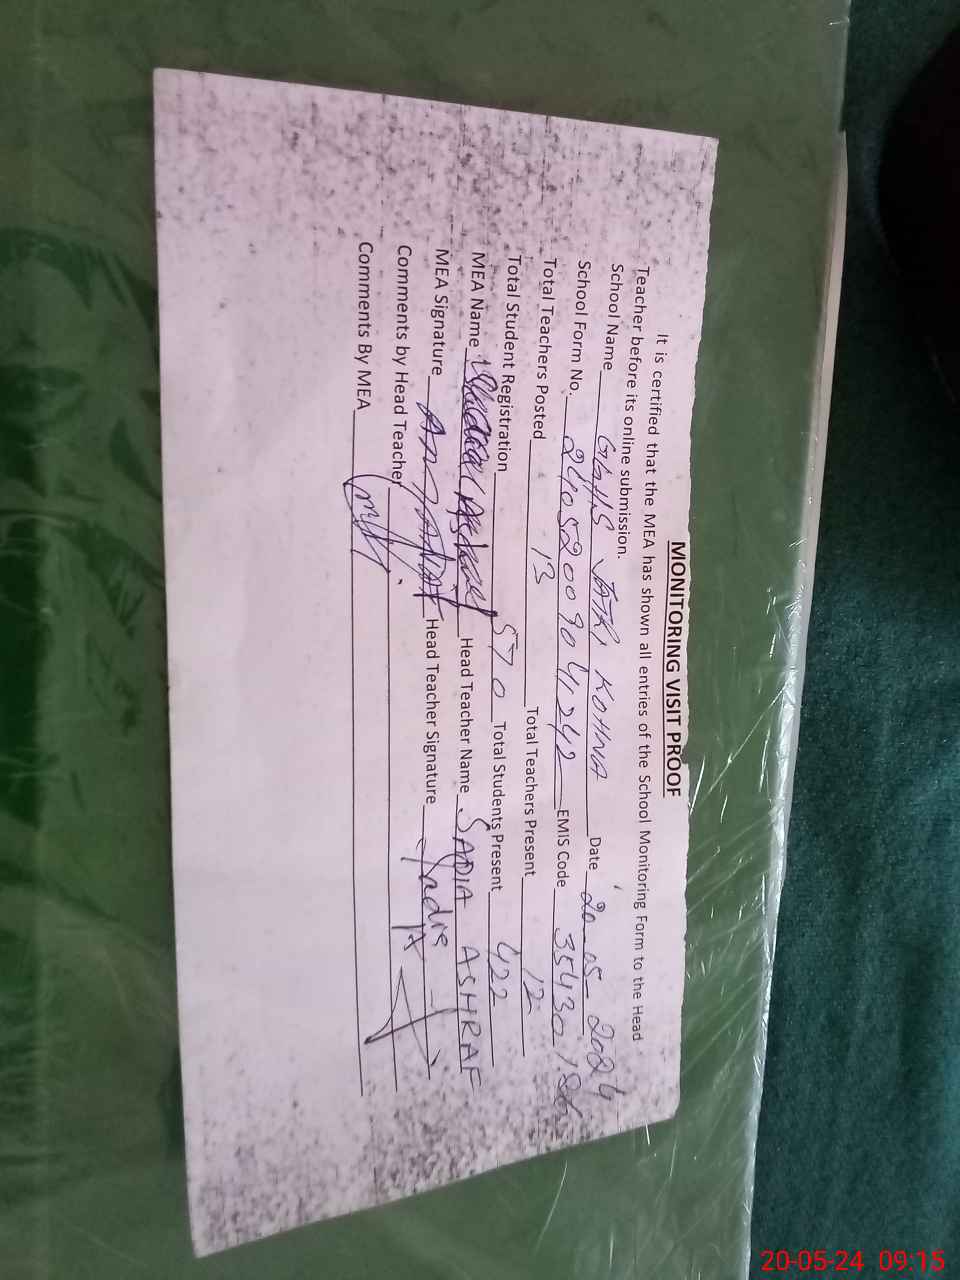 MONITORING VISIT PROOF
It is certified that the MEA has shown all entries of the School Monitoring Form to the Head
Teacher before its online submission.
School Name GGHS JATRI KOHNA Date 20-05-2024
School Form No. 2405200904242 EMIS Code 35430126
Total Teachers Posted 13 Total Teachers Present 12
Total Student Registration 570 Total Students Present 422
MEA Name Head Teacher Name SADIA ASHRAF
MEA Signature Head Teacher Signature Sadia
Comments by Head Teacher
Comments By MEA
20-05-24 09:15